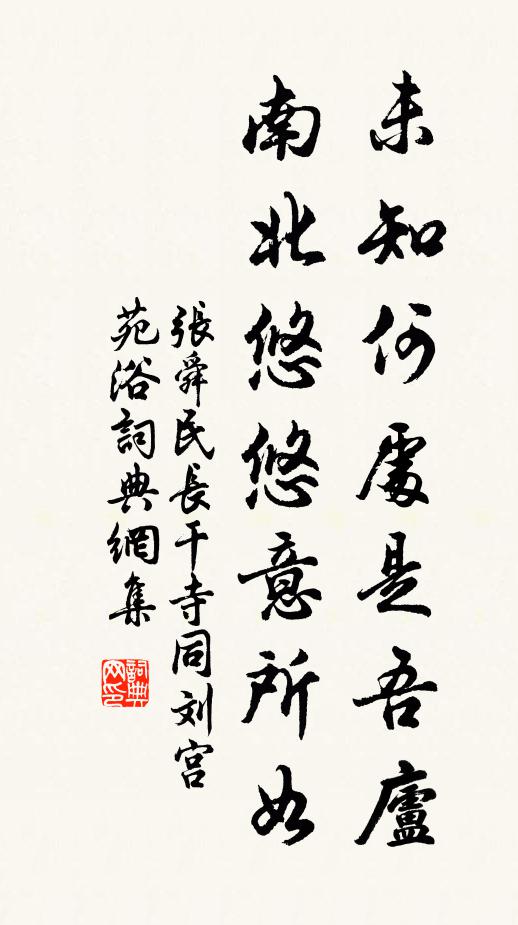 未知何處是吾廬
南北悠悠意所如
張舜民長干寺同刘宫
苑浴詞典網集
詞典网印